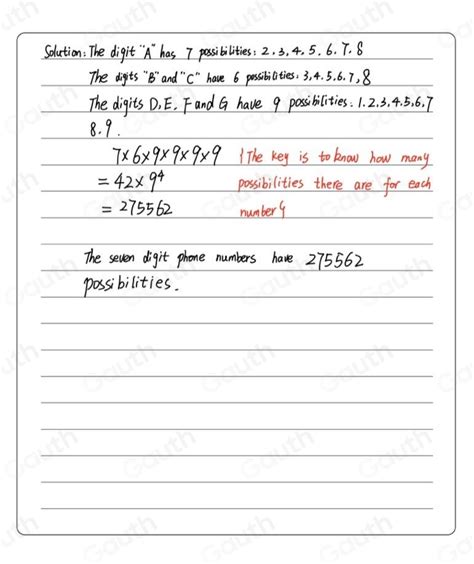 Solution: The digit "A" has 7 possibilities: 2.3.4.5.6.7.8
The digits "B" and "C" have 6 possibilities: 3.4.5.6.7,8
The digits D.E.F and G have 9 possibilities: 1.2.3.4.5.6.7
8.9.
7×6×9×9×9×9
= 42×9⁴
= 275562
{The key is to know how many
possibilities there are for each
number}
The seven digit phone numbers have 275562
possibilities.
Gauth